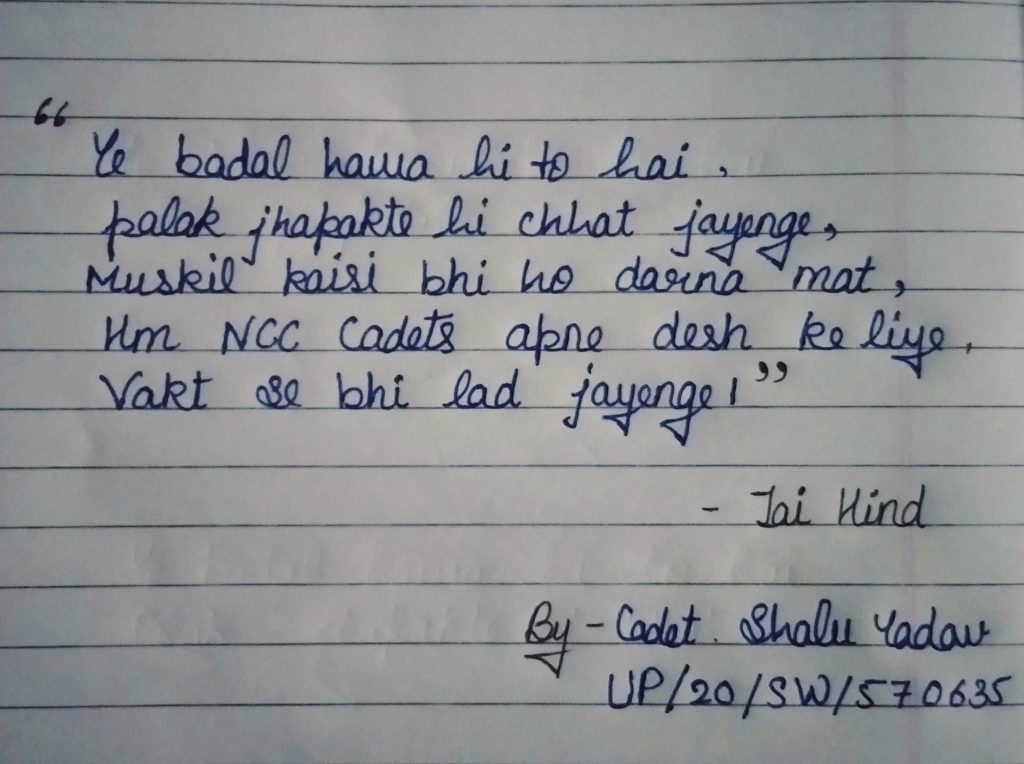 “ Ye badal hawa hi to hai,
palak jhapakte hi chhat jayenge,
Muskil kaisi bhi ho darna mat,
Hm NCC Cadets apne desh ke liye,
Vakt se bhi lad jayenge।”
- Jai Hind
By - Cadet. Shalu Yadav
UP/20/SW/570635